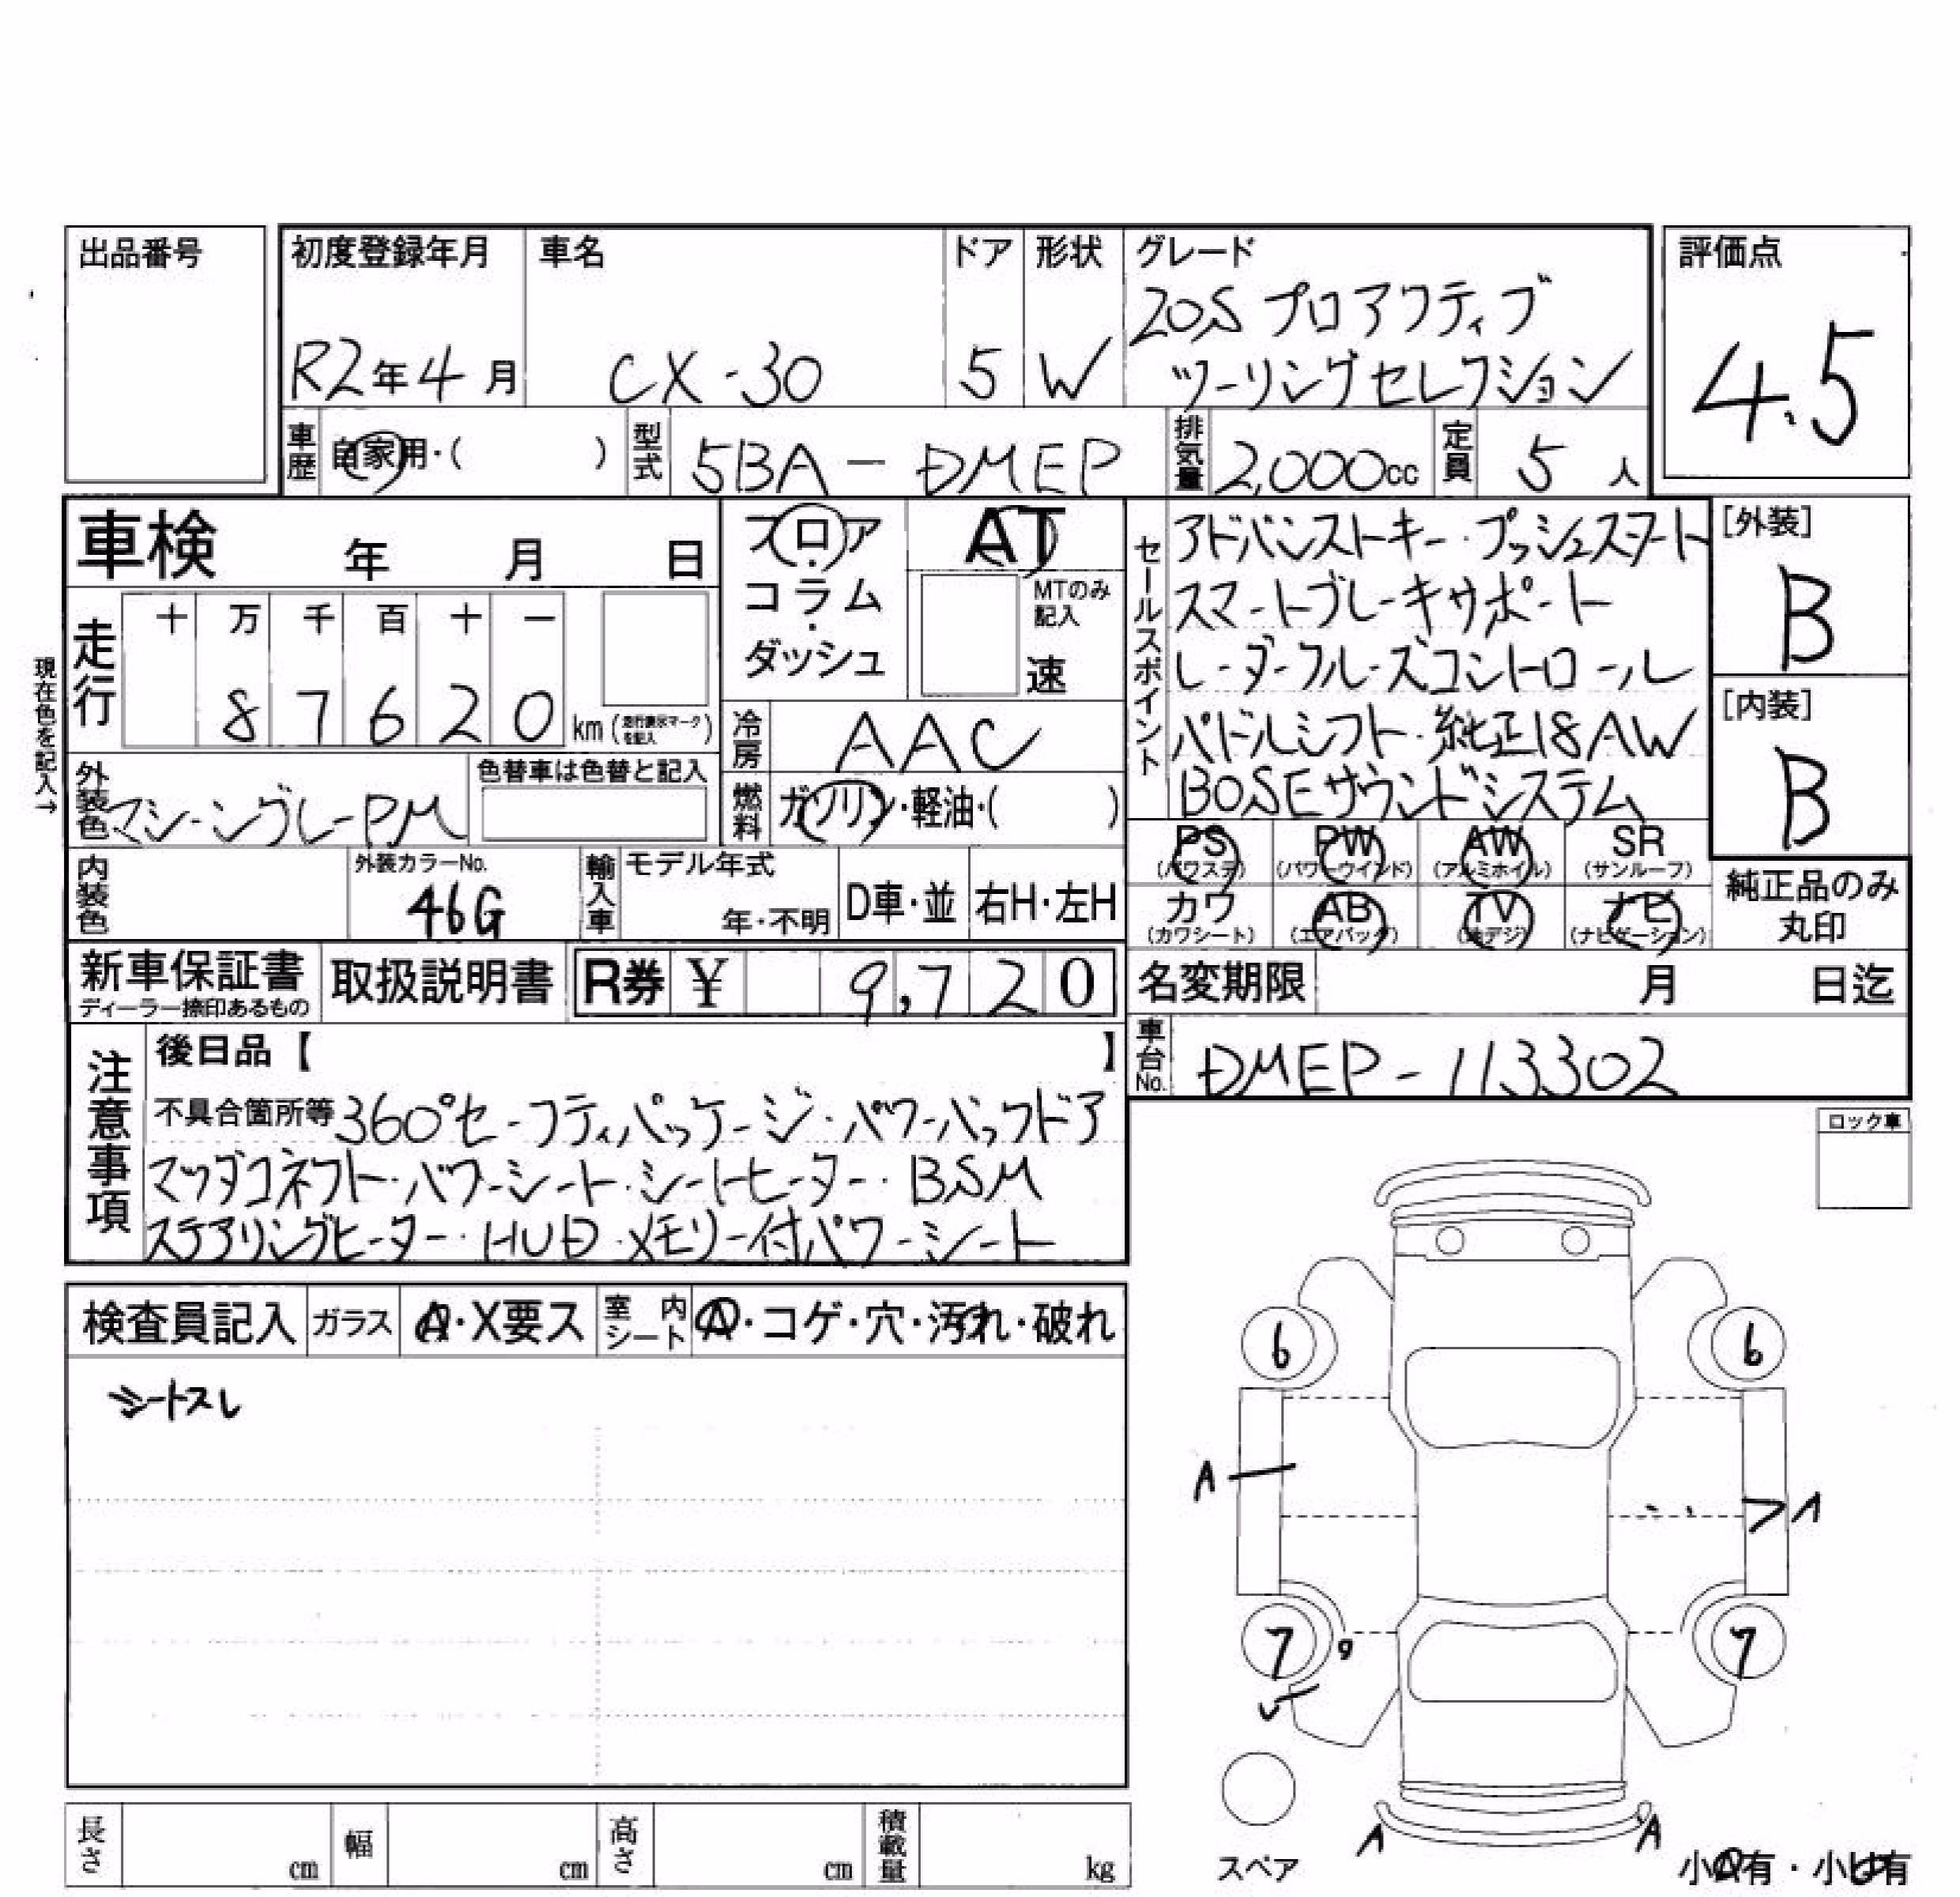 出品番号
初度登録年月 車名 ドア 形状 グレード 評価点
R2年4月 CX-30 5 W 20S プロアクティブ
ツーリングセレクション
4.5
車歴 自家用・( ) 型式 5BA-DMEP 排気量 2,000cc 定員 5人
車検 年 月 日
フロア・コラム・ダッシュ
AT
MTのみ記入
速
セールスポイント
アドバンストキー・プッシュスタート
スマートブレーキサポート
レーダークルーズコントロール
パドルシフト・純正18AW
BOSEサウンドシステム
[外装]
B
[内装]
B
現在色を記入→
走行 十 万 千 百 十 一
8 7 6 2 0 km (走行表示マークを記入)
冷房 AAC
外装色 マシーングレーPM 色替車は色替と記入
燃料 ガソリン・軽油・( )
PS (パワステ) PW (パワーウインド) AW (アルミホイル) SR (サンルーフ)
カワ (カワシート) AB (エアバッグ) TV (地デジ) ナビ (ナビゲーション)
純正品のみ
丸印
内装色 外装カラーNo. 46G 輸入車 モデル年式 年・不明 D車・並 右H・左H
新車保証書 ディーラー捺印あるもの 取扱説明書 R券 ¥ 9,720
名変期限 月 日迄
車台No. DMEP-113302
注意事項
後日品【 】
不具合箇所等 360°セーフティパッケージ・パワーバックドア
マツダコネクト・パワーシート・シートヒーター・BSM
ステアリングヒーター・HUD・メモリー付パワーシート
ロック車
検査員記入 ガラス A・X要ス 室内シート A・コゲ・穴・汚れ・破れ
シートスレ
6 6
A
A
7 7
A A
スペア
小A有・小U有
長さ cm 幅 cm 高さ cm 積載量 kg